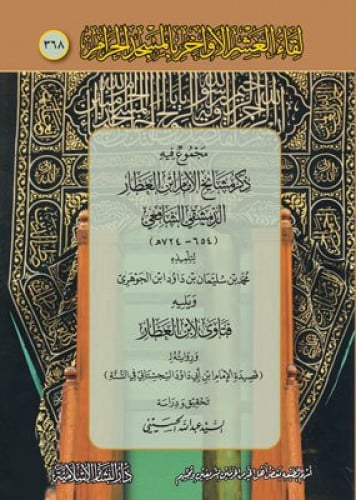 لقاء العشر الأواخر بالمسجد الحرام
٣٦٨
مجموع فيه
ذكر مشايخ الإمام ابن العطار
الدمشقي الشافعي
(٦٥٤ - ٧٢٤ هـ)
لتلميذه
محمد بن سليمان بن داود ابن الجوهري
ويليه
فتاوى لابن العطار
وروايته لـ
(قصيدة الإمام ابن أبي داود السجستاني في السنة)
تحقيق ودراسة
السيد عبد الله الحسيني
أسهم بطبعه بعض أهل الخير من الحرمين الشريفين ومحبيهم
دار البشائر الإسلامية